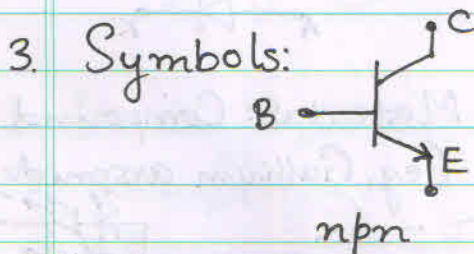 3. Symbols:
C
B
E
npn